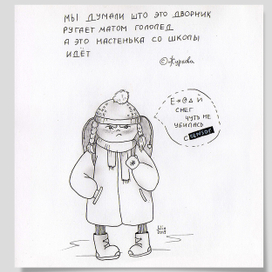 МЫ ДУМАЛИ ШТО ЭТО ДВОРНИК
РУГАЕТ МАТОМ ГОЛОЛЕД
А ЭТО НАСТЕНЬКА СО ШКОЛЫ
ИДЁТ
И
СНЕГ
ЧУТЬ НЕ
УБИЛАСЬ